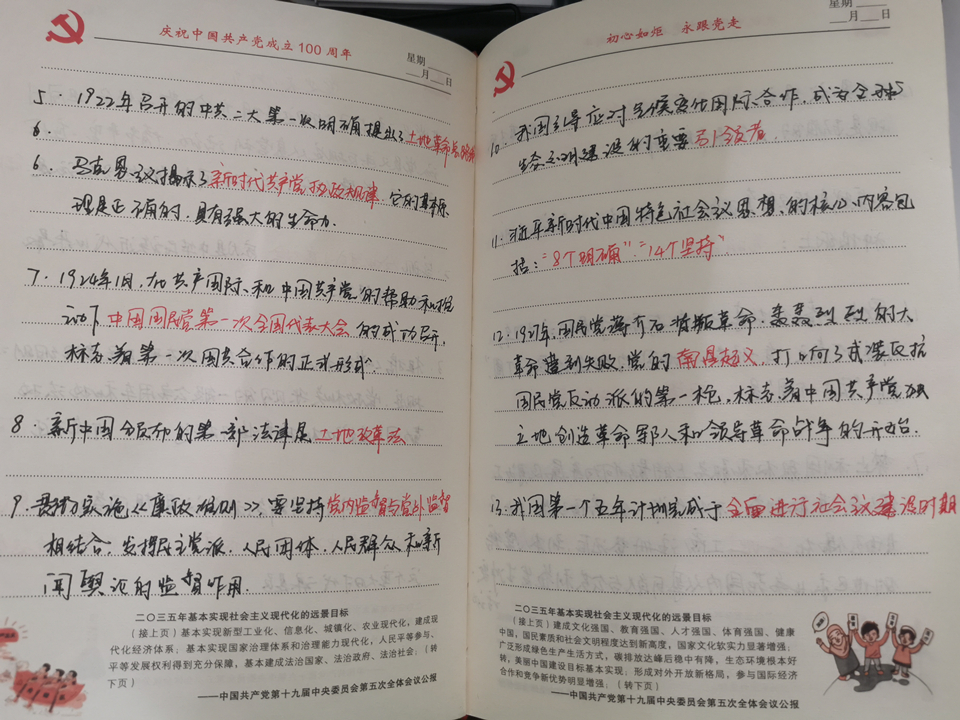 庆祝中国共产党成立100周年
星期
月 日
5. 1922年召开的中共二大第一次明确提出了土地革命
6.
6. 马克思主义揭示了新时代共产党执政规律, 它的基本原
理是正确的, 具有强大的生命力.
7. 1924年1月, 在共产国际、和中国共产党的帮助和
下 中国国民党第一次全国代表大会 的成功召开,
标志着第一次国共合作的正式形成
8. 新中国颁布的第一部法律是土地改革法
9. 实施《廉政准则》, 要坚持党内监督与党外监督
相结合, 发挥民主党派, 人民团体, 人民群众和新
闻舆论的监督作用.
二〇三五年基本实现社会主义现代化的远景目标
(接上页) 基本实现新型工业化、信息化、城镇化、农业现代化, 建成现
代化经济体系; 基本实现国家治理体系和治理能力现代化, 人民平等参与、
平等发展权利得到充分保障, 基本建成法治国家、法治政府、法治社会; (转
下页)
——中国共产党第十九届中央委员会第五次全体会议公报
初心如炬 永跟党走
星期
月 日
10. 我国引导应对气候变化国际合作, 成为全球
生态文明建设的重要引领者
11. 习近平新时代中国特色社会主义思想, 的核心、内容包
括: "8个明确" "14个坚持"
12. 1927年, 国民党蒋介石背叛革命, 轰轰烈烈的大
革命遭到失败, 党的南昌起义, 打响了武装反抗
国民党反动派的第一枪, 标志着中国共产党独
立地创造革命军队和领导革命战争的开始.
13. 我国第一个五年计划完成于全面进行社会主义建设时期
二〇三五年基本实现社会主义现代化的远景目标
(接上页) 建成文化强国、教育强国、人才强国、体育强国、健康
中国, 国民素质和社会文明程度达到新高度, 国家文化软实力显著增强;
广泛形成绿色生产生活方式, 碳排放达峰后稳中有降, 生态环境根本好
转, 美丽中国建设目标基本实现; 形成对外开放新格局, 参与国际经济
合作和竞争新优势明显增强; (转下页)
——中国共产党第十九届中央委员会第五次全体会议公报